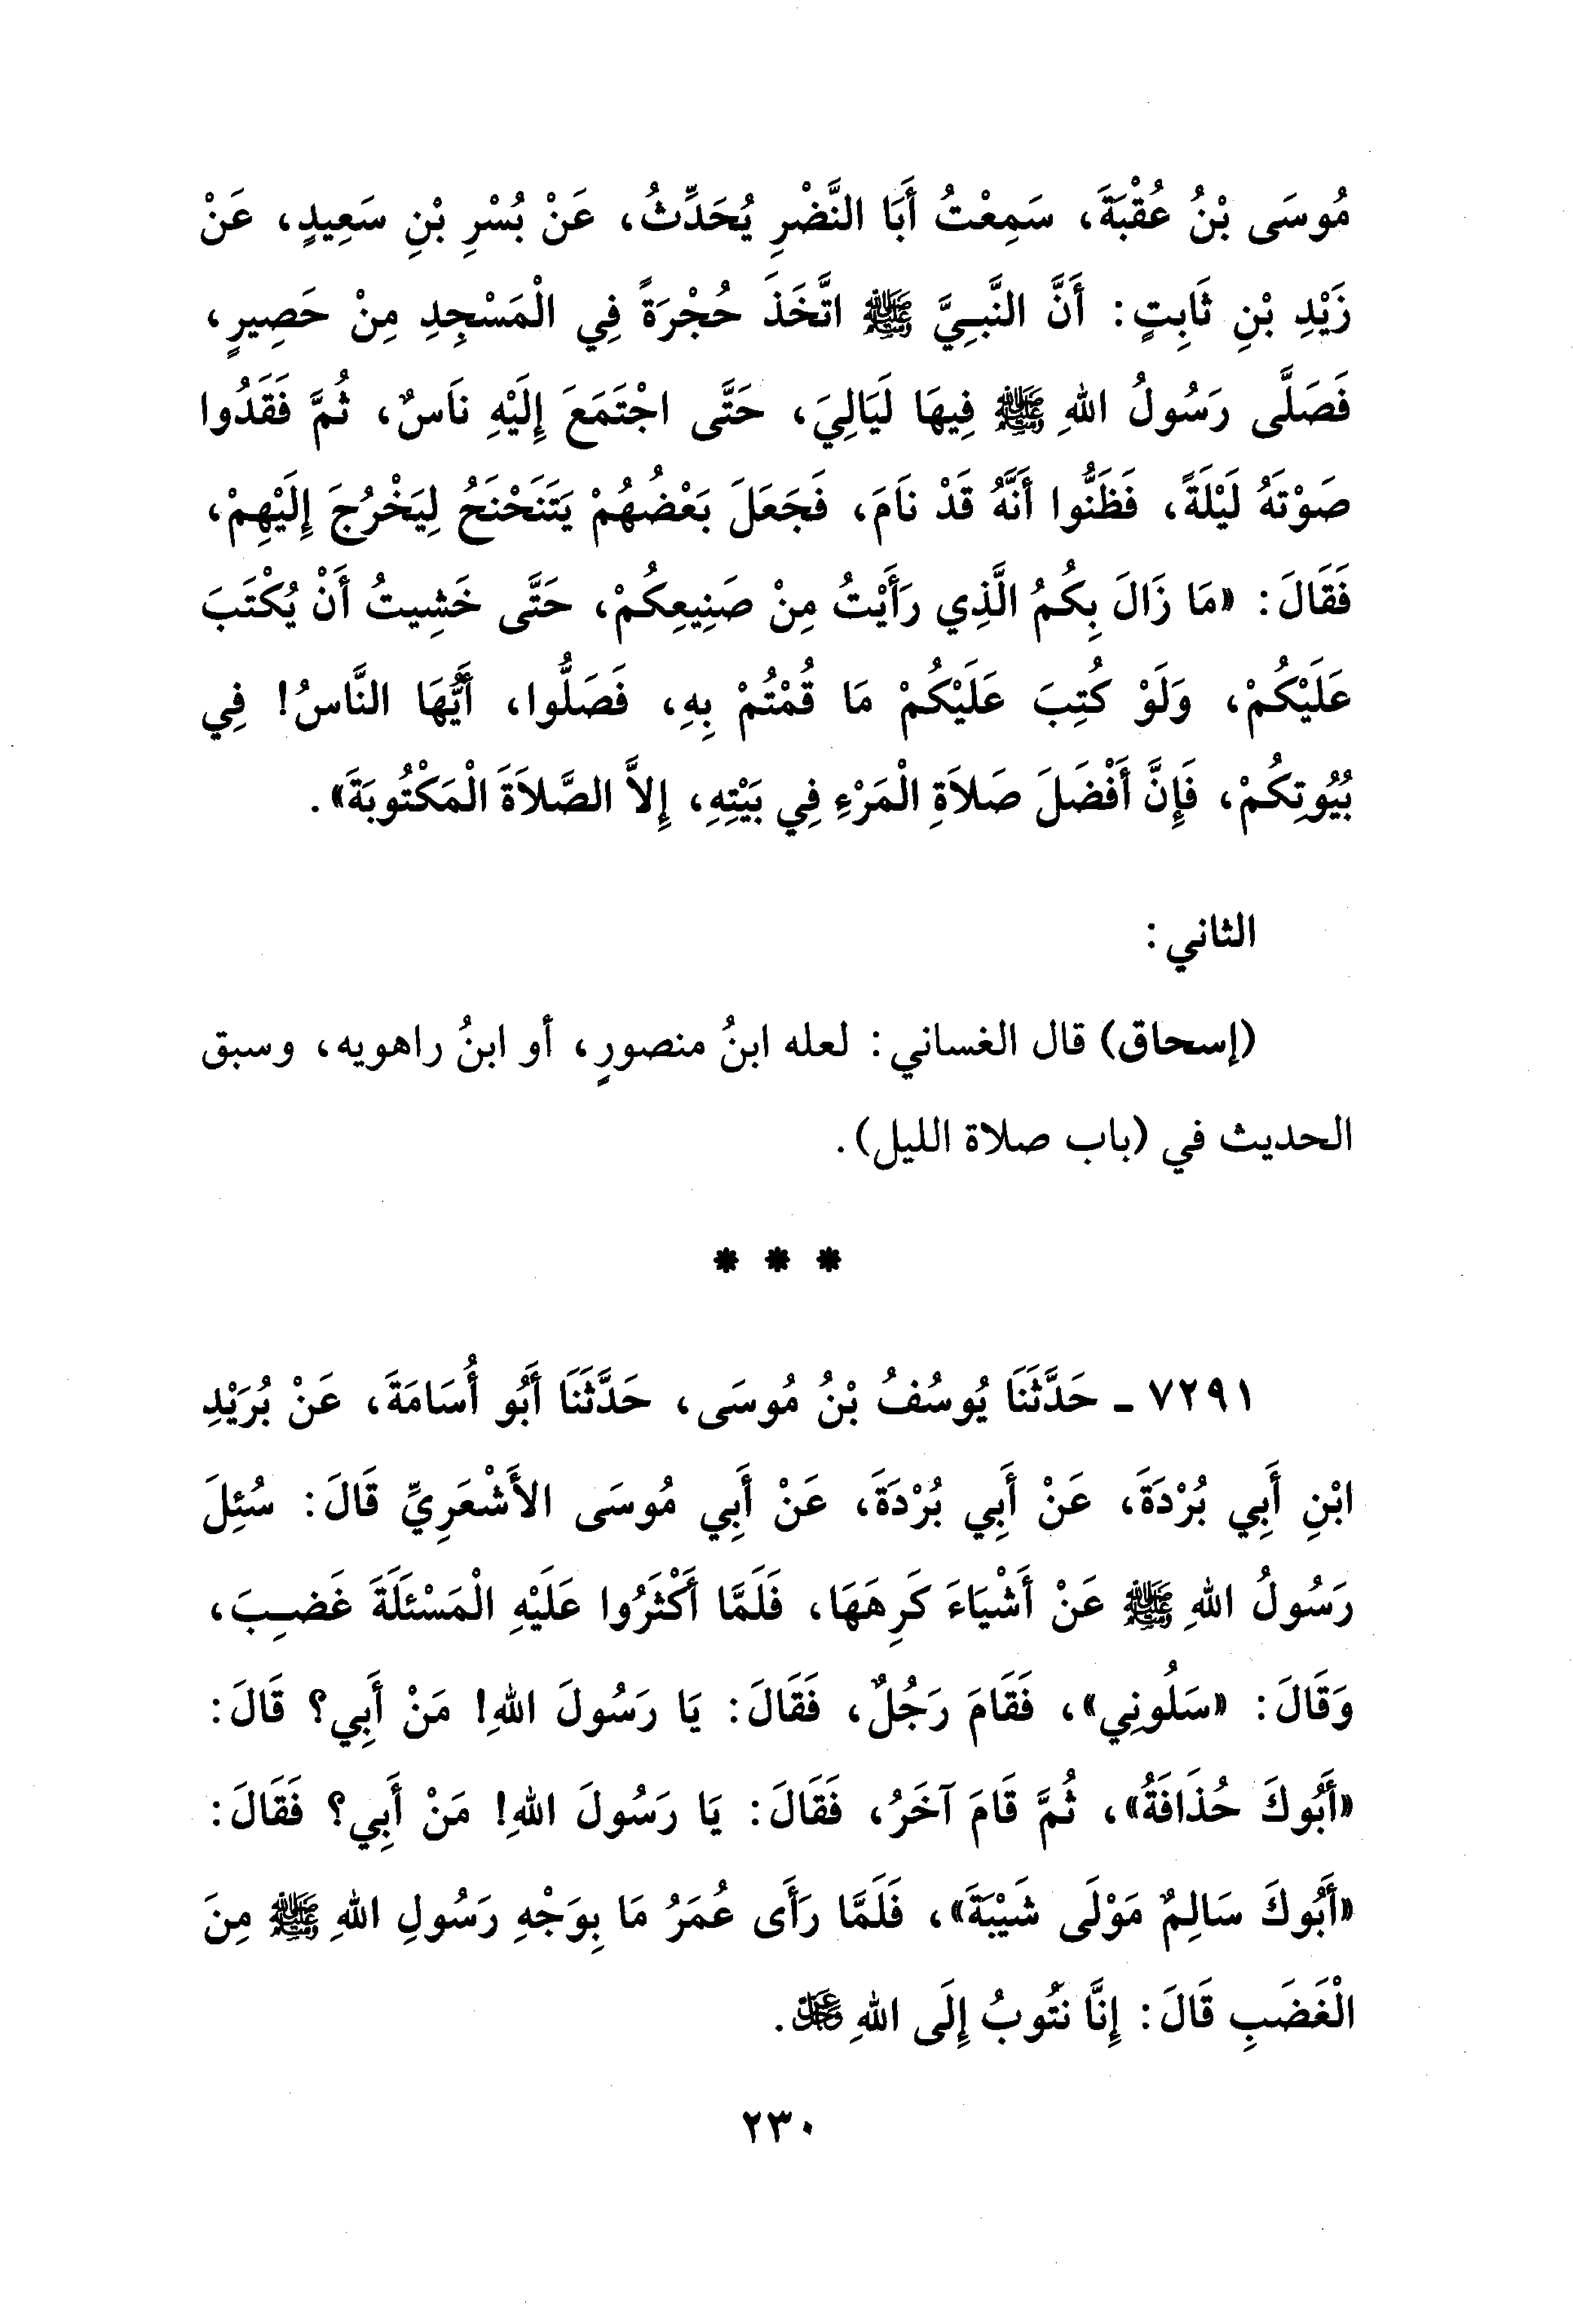 مُوسَى بْنُ عُقْبَةَ، سَمِعْتُ أَبَا النَّضْرِ يُحَدِّثُ، عَنْ بُسْرِ بْنِ سَعِيدٍ، عَنْ
زَيْدِ بْنِ ثَابِتٍ: أَنَّ النَّبِيَّ ﷺ اتَّخَذَ حُجْرَةً فِي الْمَسْجِدِ مِنْ حَصِيرٍ،
فَصَلَّى رَسُولُ اللهِ ﷺ فِيهَا لَيَالِيَ، حَتَّى اجْتَمَعَ إِلَيْهِ نَاسٌ، ثُمَّ فَقَدُوا
صَوْتَهُ لَيْلَةً، فَظَنُّوا أَنَّهُ قَدْ نَامَ، فَجَعَلَ بَعْضُهُمْ يَتَنَحْنَحُ لِيَخْرُجَ إِلَيْهِمْ،
فَقَالَ: «مَا زَالَ بِكُمُ الَّذِي رَأَيْتُ مِنْ صَنِيعِكُمْ، حَتَّى خَشِيتُ أَنْ يُكْتَبَ
عَلَيْكُمْ، وَلَوْ كُتِبَ عَلَيْكُمْ مَا قُمْتُمْ بِهِ، فَصَلُّوا، أَيُّهَا النَّاسُ! فِي
بُيُوتِكُمْ، فَإِنَّ أَفْضَلَ صَلاَةِ الْمَرْءِ فِي بَيْتِهِ، إِلاَّ الصَّلاَةَ الْمَكْتُوبَةَ».
الثاني:
(إسحاق) قال الغساني: لعله ابنُ منصورٍ، أو ابنُ راهويه، وسبق
الحديث في (باب صلاة الليل).
* * *
٧٢٩١ - حَدَّثَنَا يُوسُفُ بْنُ مُوسَى، حَدَّثَنَا أَبُو أُسَامَةَ، عَنْ بُرَيْدِ
ابْنِ أَبِي بُرْدَةَ، عَنْ أَبِي بُرْدَةَ، عَنْ أَبِي مُوسَى الأَشْعَرِيِّ قَالَ: سُئِلَ
رَسُولُ اللهِ ﷺ عَنْ أَشْيَاءَ كَرِهَهَا، فَلَمَّا أَكْثَرُوا عَلَيْهِ الْمَسْئَلَةَ غَضِبَ،
وَقَالَ: «سَلُونِي»، فَقَامَ رَجُلٌ، فَقَالَ: يَا رَسُولَ اللهِ! مَنْ أَبِي؟ قَالَ:
«أَبُوكَ حُذَافَةُ»، ثُمَّ قَامَ آخَرُ، فَقَالَ: يَا رَسُولَ اللهِ! مَنْ أَبِي؟ فَقَالَ:
«أَبُوكَ سَالِمٌ مَوْلَى شَيْبَةَ»، فَلَمَّا رَأَى عُمَرُ مَا بِوَجْهِ رَسُولِ اللهِ ﷺ مِنَ
الْغَضَبِ قَالَ: إِنَّا نَتُوبُ إِلَى اللهِ عَزَّ وَجَلَّ.
٢٣٠